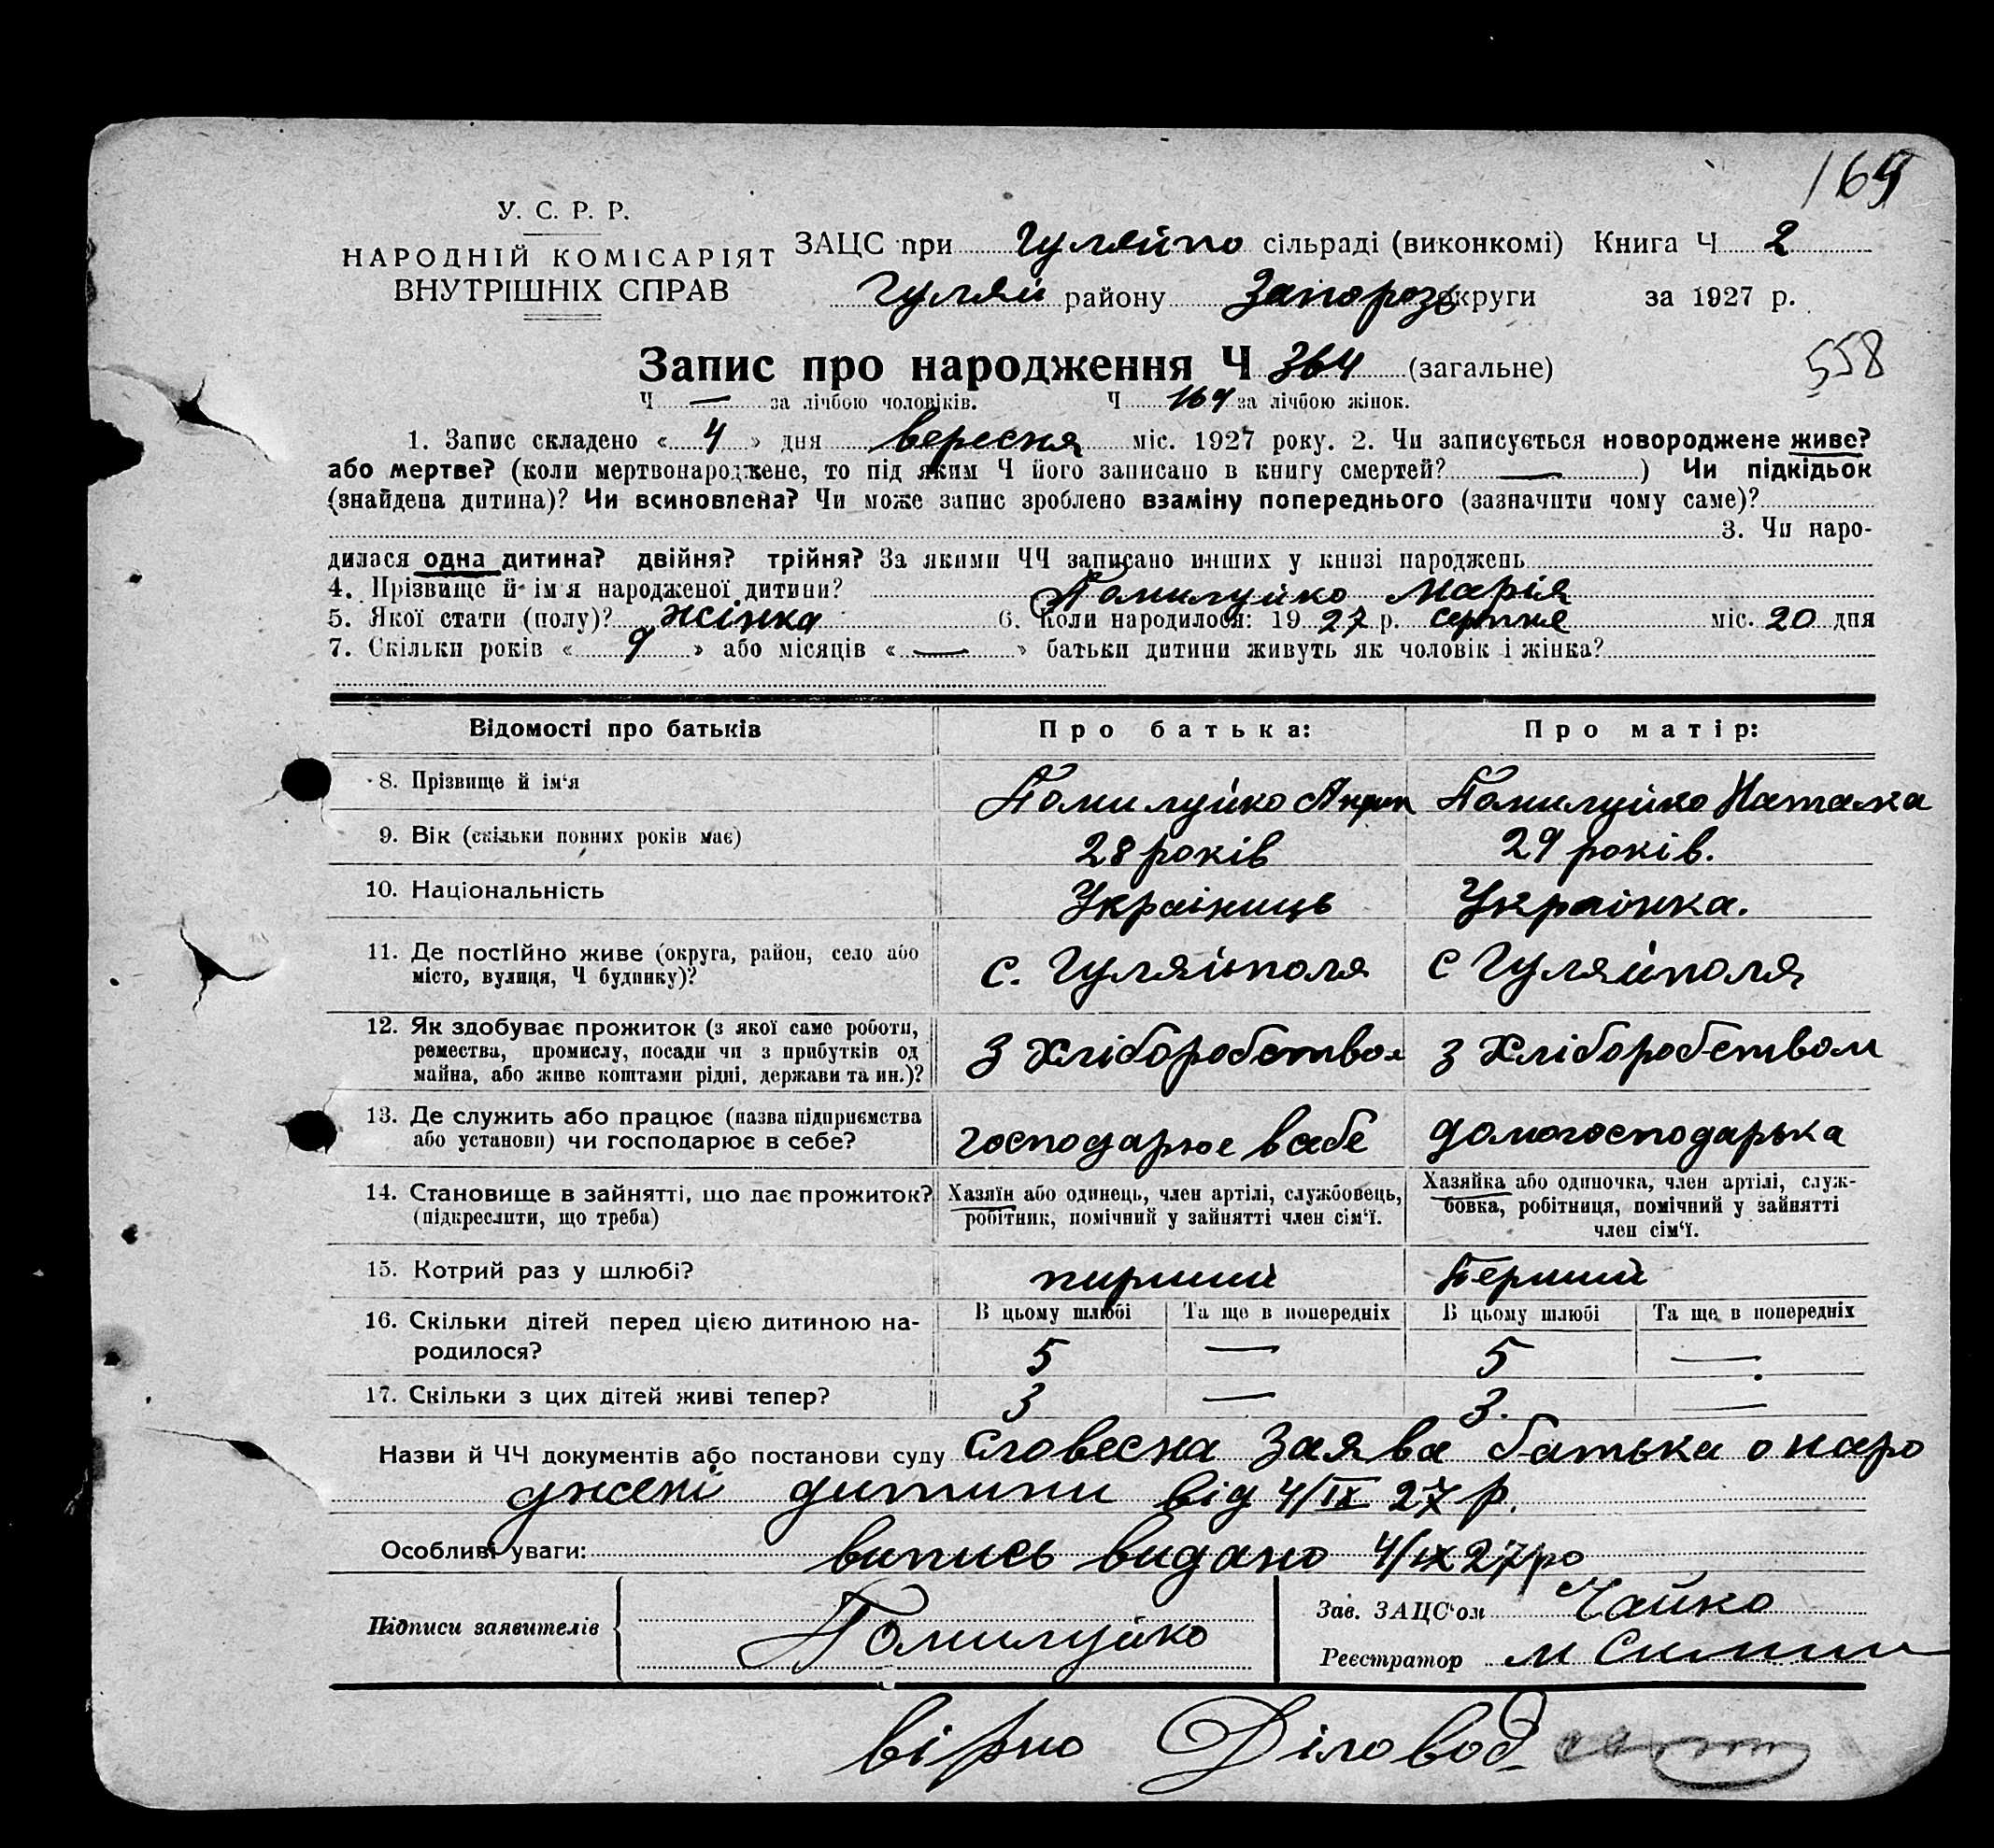 169
У. С. Р. Р.
НАРОДНІЙ КОМІСАРІЯТ
ВНУТРІШНІХ СПРАВ
ЗАЦС при Гуляйпо сільраді (виконкомі) Книга Ч 2
Гуляй району Запорозь округи за 1927 р.
558
Запис про народження Ч 364 (загальне)
Ч — за лічбою чоловіків. Ч 169 за лічбою жінок.
1. Запис складено « 4 » дня вересня міс. 1927 року. 2. Чи записується новороджене живе?
або мертве? (коли мертвонароджене, то під яким Ч його записано в книгу смертей? — ) Чи підкідьок
(знайдена дитина)? Чи всиновлена? Чи може запис зроблено взаміну попереднього (зазначити чому саме)?
3. Чи наро-
дилася одна дитина? двійня? трійня? За якими ЧЧ записано инших у книзі народжень
4. Прізвище й ім'я народженої дитини? Помилуйко Марія
5. Якої стати (полу)? жінка 6. Коли народилося: 19 27 р. серпня міс. 20 дня
7. Скільки років « 9 » або місяців « — » батьки дитини живуть як чоловік і жінка?
Відомості про батьків Про батька: Про матір:
8. Прізвище й ім'я Помилуйко Помилуйко Наталка
9. Вік (скільки повних років має) 28 років 29 років.
10. Національність Украіниць Украінка.
11. Де постійно живе (округа, район, село або
місто, вулиця, Ч будинку)? с. Гуляйполя с Гуляйполя
12. Як здобуває прожиток (з якої саме роботи,
ремества, промислу, посади чи з прибутків од
майна, або живе коштами рідні, держави та ин.)? З Хліборобством З Хліборобством
13. Де служить або працює (назва підприємства
або установи) чи господарює в себе? господарює в себе домогосподарька
14. Становище в зайнятті, що дає прожиток?
(підкреслити, що треба)
Хазяїн або одинець, член артілі, службовець,
робітник, помічний у зайнятті член сім'ї.
Хазяйка або одиночка, член артілі, служ-
бовка, робітниця, помічний у зайнятті
член сім'ї.
15. Котрий раз у шлюбі? пирший Перший
16. Скільки дітей перед цією дитиною на-
родилося?
В цьому шлюбі Та ще в попередніх В цьому шлюбі Та ще в попередніх
5 — 5 —
17. Скільки з цих дітей живі тепер? 3 — 3. —
Назви й ЧЧ документів або постанови суду Словесна Заява батька о наро
джені дитини від 4/IX 27 р.
Особливі уваги: випись видано 4/IX 27 ро
Підписи заявителів Помилуйко
Зав. ЗАЦС'ом Чайко
Реєстратор М
вірно Діловод